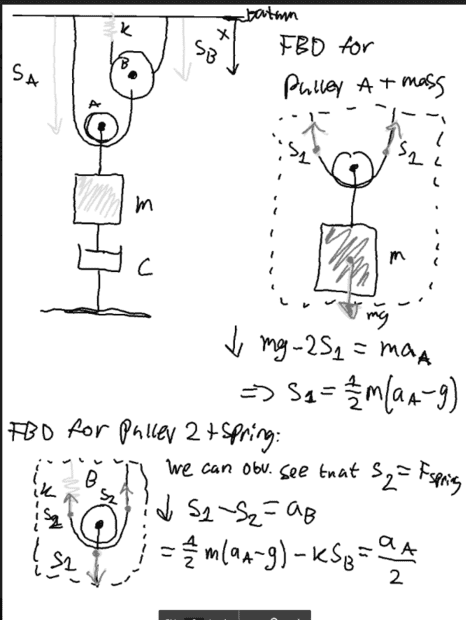 datum
k
x
S_A
B
S_B
A
m
C
FBD for
Pulley A + mass
S_1
S_2
m
mg
↓ mg-2S_1 = ma_A
=> S_1 = 1/2 m(a_A-g)
FBD for Pulley 2 + spring:
k
B
S_2
S_2
S_1
we can obv. see that S_2 = F_spring
↓ S_1 - S_2 = a_B
= 1/2 m(a_A-g) - kS_B = a_A/2